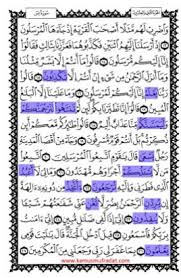 وَاضْرِبْ لَهُم مَّثَلًا أَصْحَٰبَ الْقَرْيَةِ إِذْ جَآءَهَا الْمُرْسَلُونَ
إِذْ أَرْسَلْنَآ إِلَيْهِمُ اثْنَيْنِ فَكَذَّبُوهُمَا فَعَزَّزْنَا بِثَالِثٍ فَقَالُوٓا
إِنَّآ إِلَيْكُم مُّرْسَلُونَ قَالُوا مَآ أَنتُمْ إِلَّا بَشَرٌ مِّثْلُنَا
وَمَآ أَنزَلَ الرَّحْمَٰنُ مِن شَىْءٍ إِنْ أَنتُمْ إِلَّا تَكْذِبُونَ قَالُوا
رَبُّنَا يَعْلَمُ إِنَّآ إِلَيْكُمْ لَمُرْسَلُونَ وَمَا عَلَيْنَآ إِلَّا الْبَلَٰغُ
الْمُبِينُ قَالُوٓا إِنَّا تَطَيَّرْنَا بِكُمْ لَئِن لَّمْ تَنتَهُوا لَنَرْجُمَنَّكُمْ
وَلَيَمَسَّنَّكُم مِّنَّا عَذَابٌ أَلِيمٌ قَالُوا طَٰٓئِرُكُم مَّعَكُمْ أَئِن
ذُكِّرْتُم بَلْ أَنتُمْ قَوْمٌ مُّسْرِفُونَ وَجَآءَ مِنْ أَقْصَا الْمَدِينَةِ
رَجُلٌ يَسْعَىٰ قَالَ يَٰقَوْمِ اتَّبِعُوا الْمُرْسَلِينَ اتَّبِعُوا
مَن لَّا يَسْـَٔلُكُمْ أَجْرًا وَهُم مُّهْتَدُونَ وَمَا لِىَ لَآ أَعْبُدُ
الَّذِى فَطَرَنِى وَإِلَيْهِ تُرْجَعُونَ ءَأَتَّخِذُ مِن دُونِهِٓ ءَالِهَةً إِن
يُرِدْنِ الرَّحْمَٰنُ بِضُرٍّ لَّا تُغْنِ عَنِّى شَفَٰعَتُهُمْ شَيْـًٔا
وَلَا يُنقِذُونِ إِنِّىٓ إِذًا لَّفِى ضَلَٰلٍ مُّبِينٍ إِنِّىٓ ءَامَنتُ
بِرَبِّكُمْ فَاسْمَعُونِ قِيلَ ادْخُلِ الْجَنَّةَ قَالَ يَٰلَيْتَ قَوْمِى
يَعْلَمُونَ بِمَا غَفَرَ لِى رَبِّى وَجَعَلَنِى مِنَ الْمُكْرَمِينَ
www.kamusmufradat.com